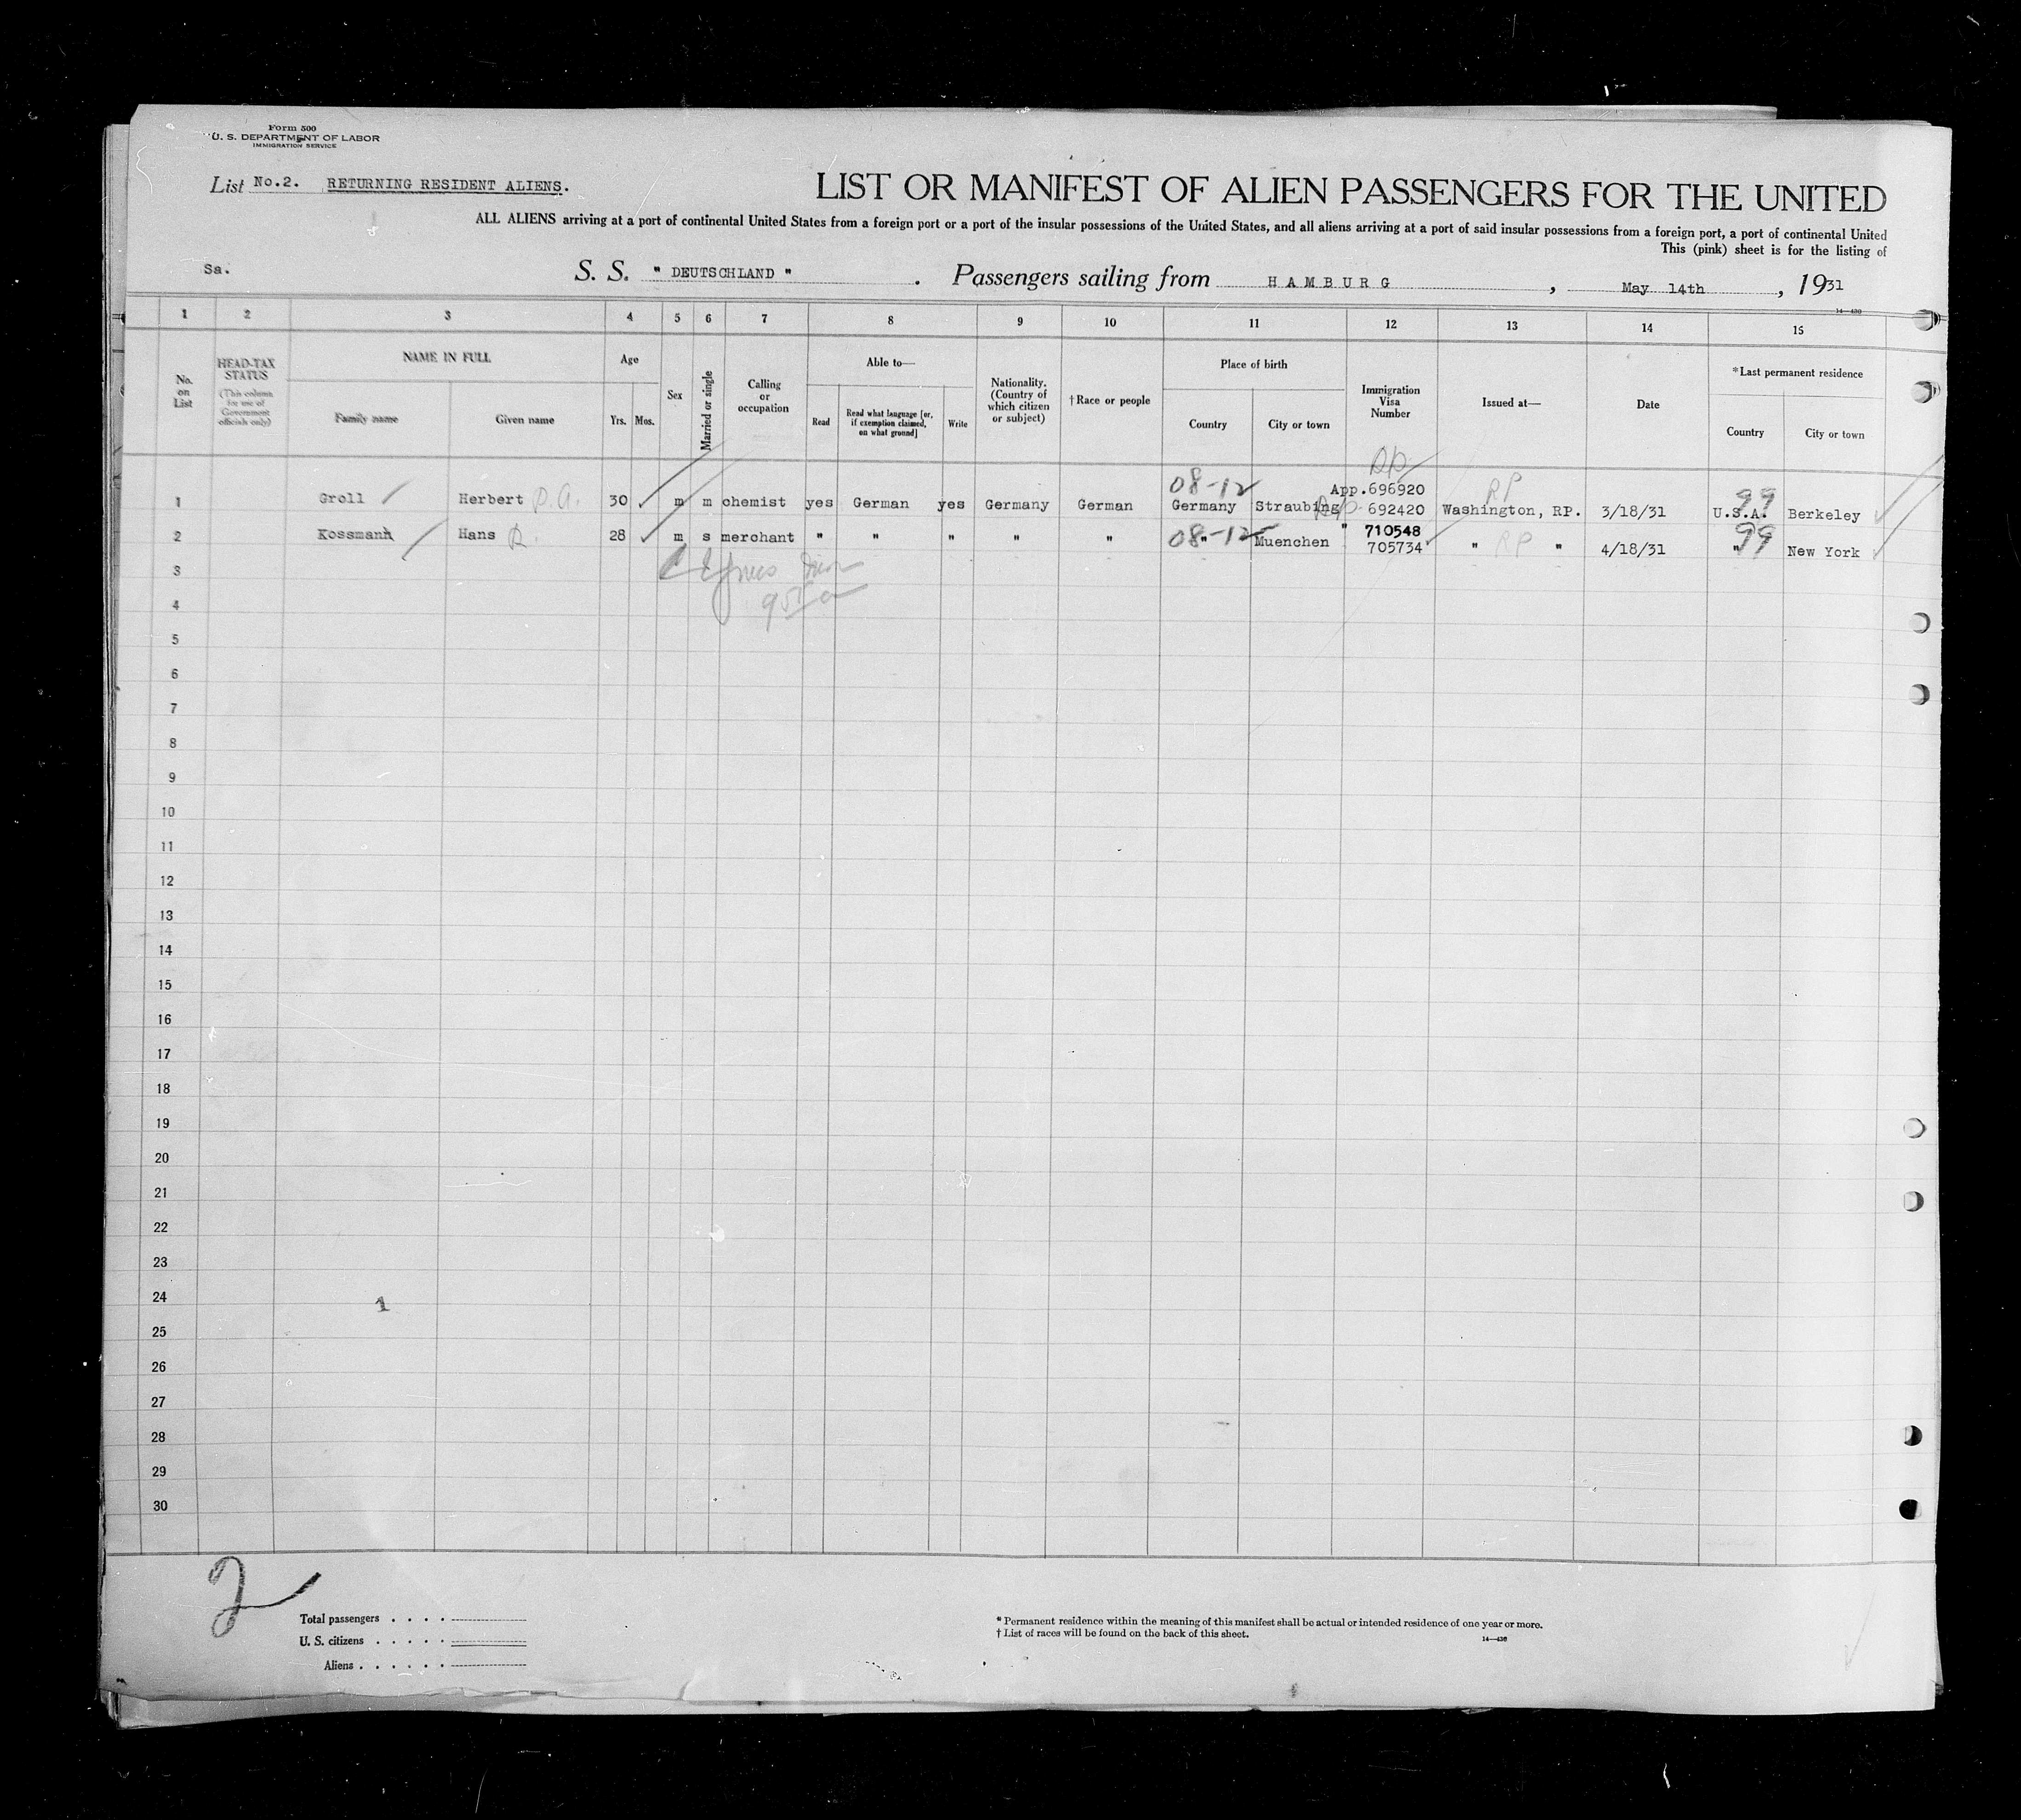 Form 500
U. S. DEPARTMENT OF LABOR
IMMIGRATION SERVICE
List No.2. RETURNING RESIDENT ALIENS.
LIST OR MANIFEST OF ALIEN PASSENGERS FOR THE UNITED
ALL ALIENS arriving at a port of continental United States from a foreign port or a port of the insular possessions of the United States, and all aliens arriving at a port of said insular possessions from a foreign port, a port of continental United
This (pink) sheet is for the listing of
Sa. S. S. " DEUTSCHLAND " . Passengers sailing from HAMBURG , May 14th , 1931
14—430
1 2 3 4 5 6 7 8 9 10 11 12 13 14 15
No. on List
HEAD-TAX STATUS
(This column for use of Government officials only)
NAME IN FULL
Family name
Given name
Age
Yrs. Mos.
Sex
Married or single
Calling or occupation
Able to—
Read
Read what language [or, if exemption claimed, on what ground]
Write
Nationality. (Country of which citizen or subject)
† Race or people
Place of birth
Country
City or town
Immigration Visa Number
Issued at—
Date
* Last permanent residence
Country
City or town
RP
08-12 App.696920 RP 99
1 Groll Herbert P.A. 30 m m chemist yes German yes Germany German Germany Straubing 692420 Washington, RP. 3/18/31 U.S.A. Berkeley
08-12 " 710548 99
2 Kossmann Hans R. 28 m s merchant " " " " " " Muenchen 705734 " RP " 4/18/31 " New York
3
4
5
6
7
8
9
10
11
12
13
14
15
16
17
18
19
20
21
22
23
24 1
25
26
27
28
29
30
2
Total passengers . . . .
U. S. citizens . . . . .
Aliens . . . . . .
* Permanent residence within the meaning of this manifest shall be actual or intended residence of one year or more.
† List of races will be found on the back of this sheet.
14—430